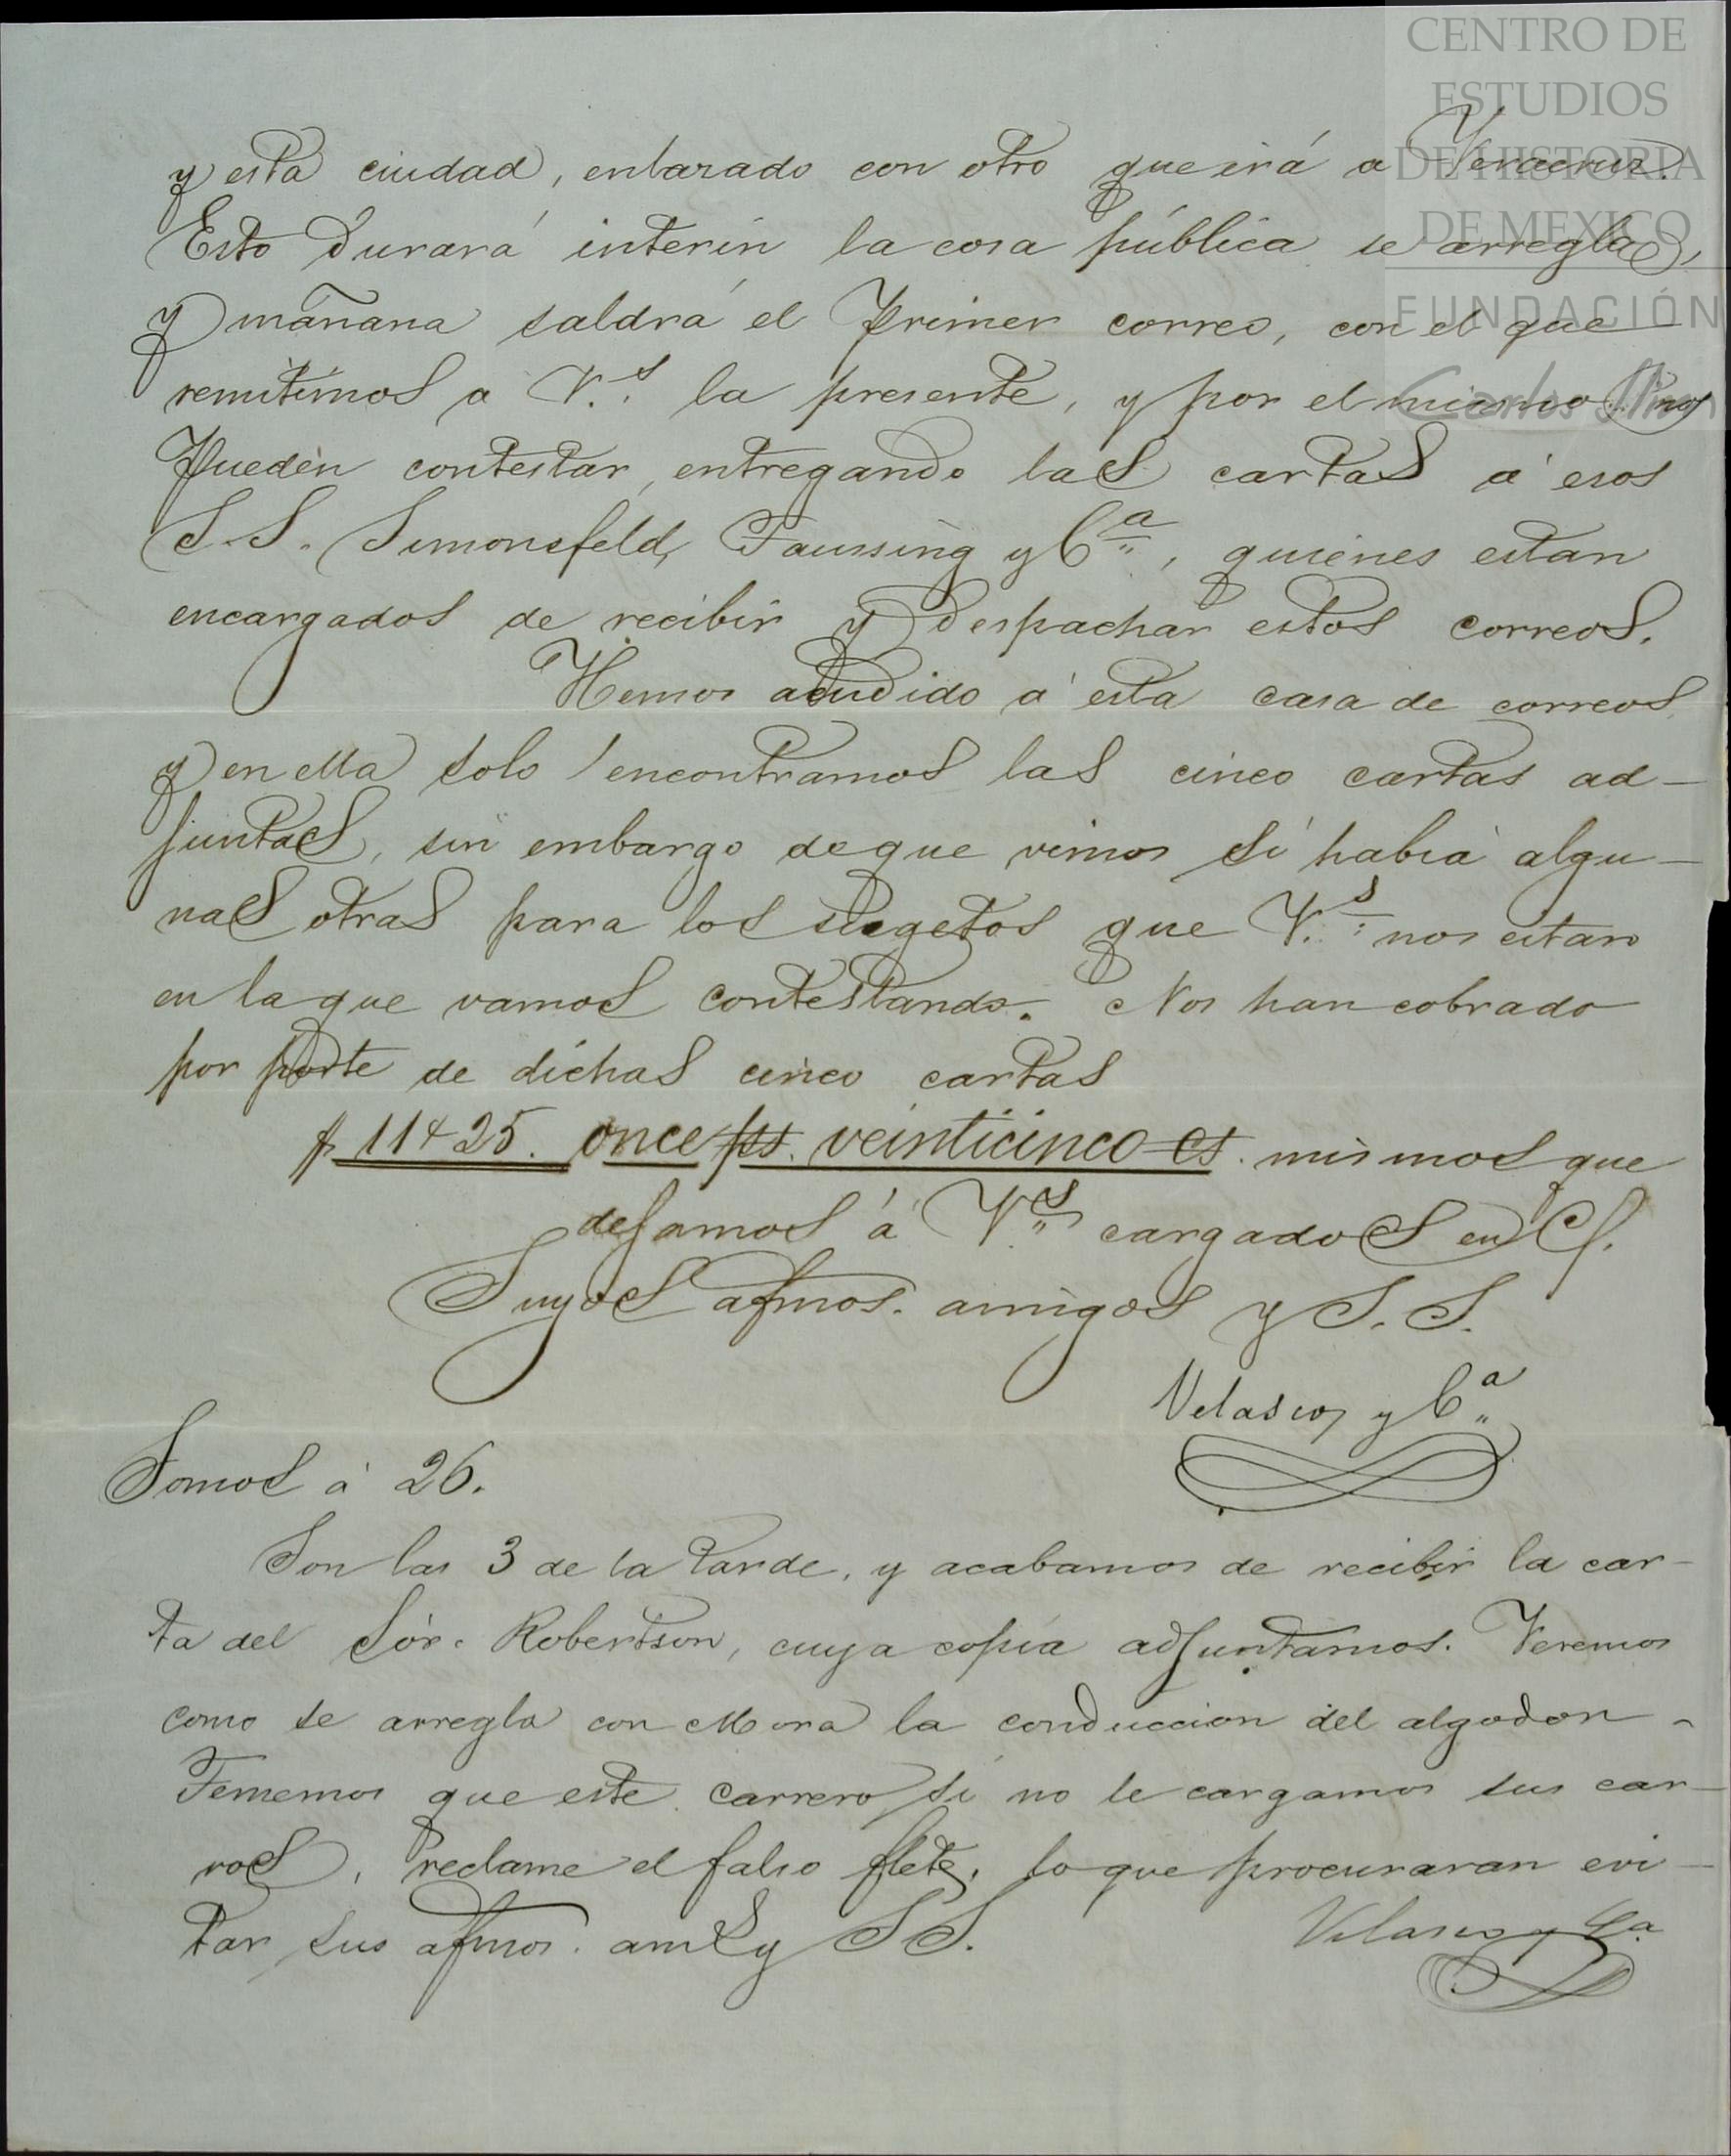 CENTRO DE
ESTUDIOS
DE HISTORIA
DE MEXICO
FUNDACIÓN
Carlos Slim
y esta ciudad, enlazado con otro que irá a Veracruz.
Esto durará interin la cosa pública se arregla,
y mañana saldrá el primer correo, con el que
remitimos a V.s la presente, y por el mismo nos
pueden contestar, entregando las cartas á esos
S.S. Simonsfeld, Taussing y Ca, quienes estan
encargados de recibir y despachar estos correos.
Hemos acudido á esta casa de correos
y en ella solo encontramos las cinco cartas ad-
juntas, sin embargo de que vimos si habia algu-
nas otras para los sugetos que V.s nos citan
en la que vamos contestando. Nos han cobrado
por porte de dichas cinco cartas
$ 11"25. once ps. veinticinco cs. mismos que
dejamos á V.s cargados en C/.
Suyos afmos. amigos y S. S.
Velasco y Ca
Somos á 26.
Son las 3 de la tarde, y acabamos de recibir la car-
ta del Sór. Robertson, cuya copia adjuntamos. Veremos
como se arregla con Mora la conduccion del algodon.
Tememos que este carrero si no le cargamos sus car-
ros, reclame el falso flete, lo que procuraran evi-
tar sus afmos. ams y SS.
Velasco y Ca.